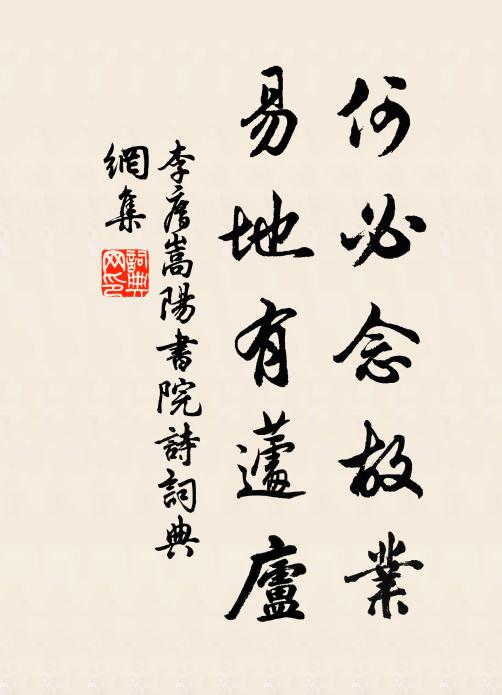 何必念故業
易地有蘧廬
李廌嵩陽書院詩詞典
網集
詞典
网印